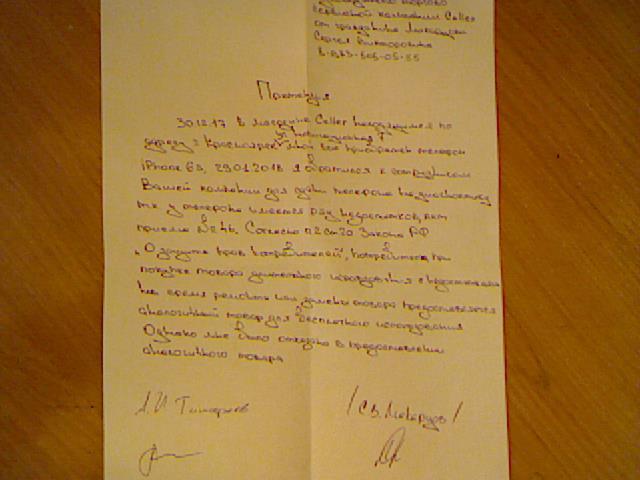 сервисной компании Celler
от гражданина
Сергея Викторовича
Претензия
30.12.17 в магазине Celler находящимся по
адресу г Красноярск мной был приобретен телефон
iPhone 6s, 29.01.2018 я обратился к сотрудникам
Вашей компании для сдачи телефона на диагностику
т.к у телефона имеется ряд недостатков, акт
приема № 246. Согласно п2 ст 20 Закона РФ
"О защите прав потребителей", потребителю при
покупке товара длительного с недостатками
на время ремонта или замены товара предоставляется
аналогичный товар для бесплатного использования
Однако мне было отказано в предоставлении
аналогичного товара
/ С.В. /